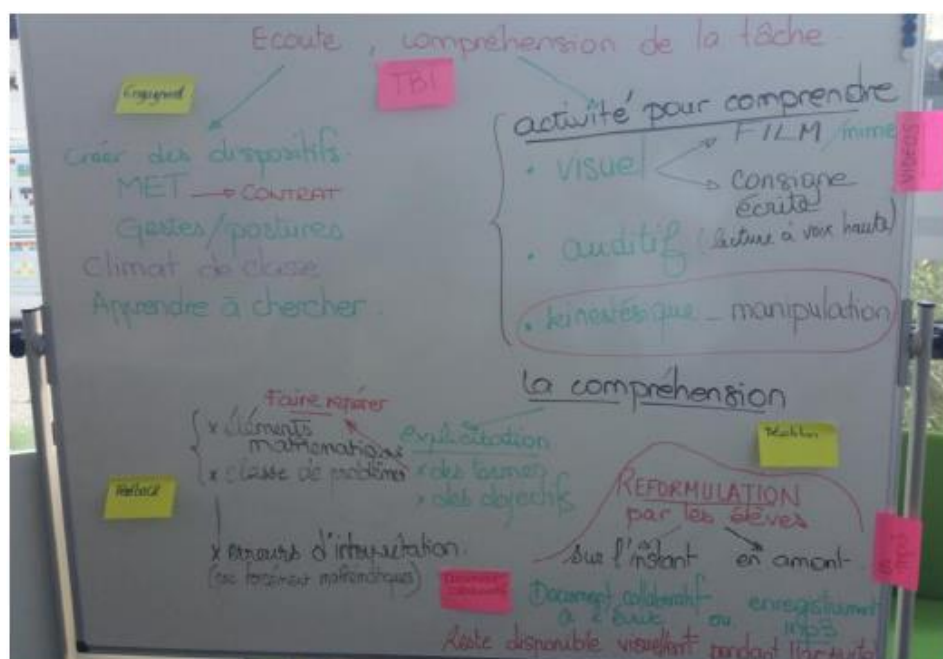 Ecoute, compréhension de la tâche
TBI
Engagement
Créer des dispositifs.
MET → CONTRAT
Gestes/postures
Climat de classe
Apprendre à chercher.
activité pour comprendre
• visuel
FILM/mime
consigne
écrite
• auditif (lecture à voix haute)
• kinestésique _ manipulation
VIDEOS
la compréhension
Faire repérer
x éléments
mathématiques
x classe de problèmes
x erreurs d'interprétation.
(pas forcément mathématiques)
Feedback
explicitation
x des termes
x des objectifs
REFORMULATION
par les élèves
sur l'instant
en amont
Document collaboratif
à l'écrit ou enregistrement
mp3
Reste disponible visuellement pendant l'activité